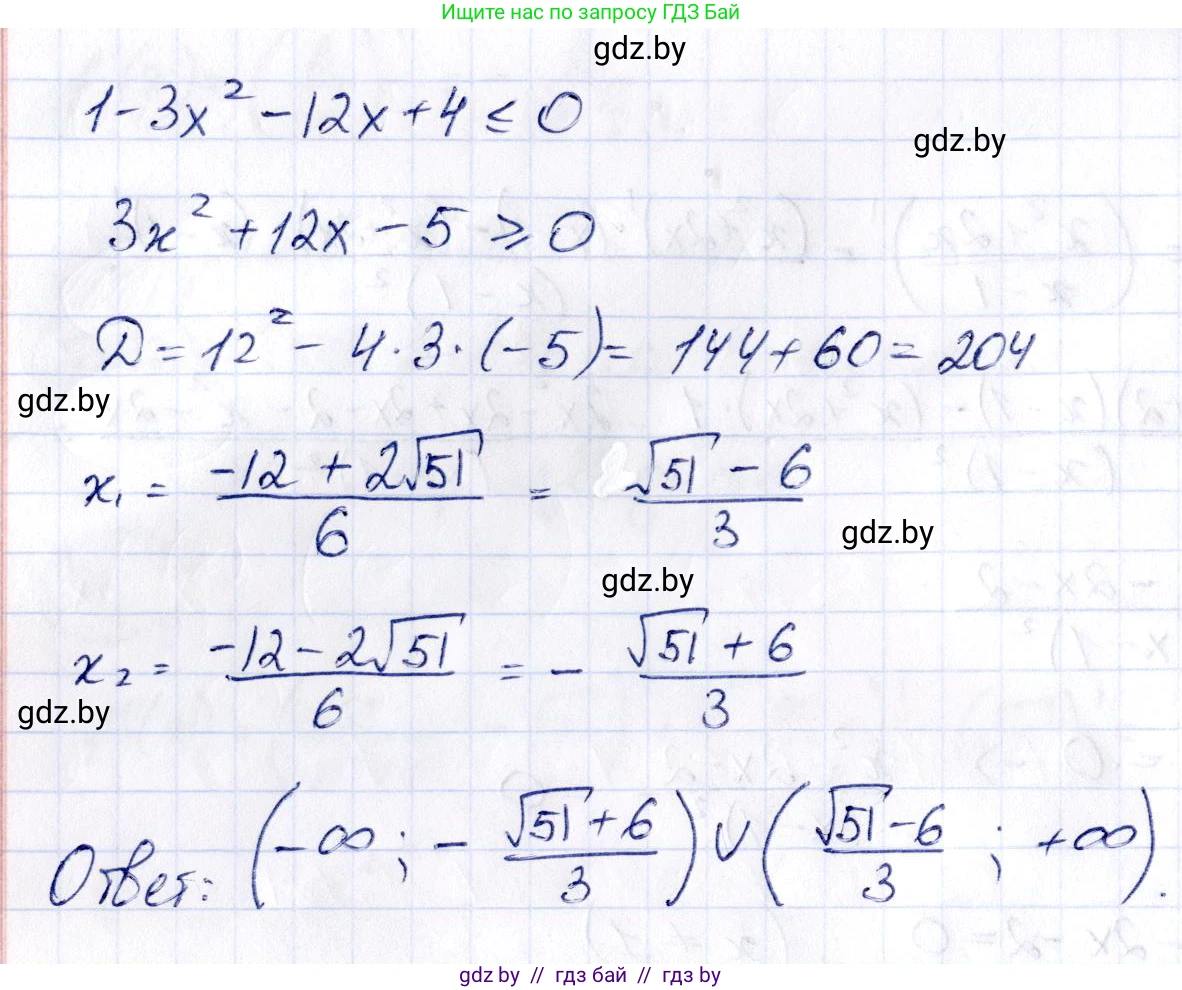 Ищите нас по запросу ГДЗ Бай
gdz.by
1 - 3x² - 12x + 4 ≤ 0
gdz.by
3x² + 12x - 5 ≥ 0
D = 12² - 4 · 3 · (-5) = 144 + 60 = 204
gdz.by
x₁ = (-12 + 2√51)/6 = (√51 - 6)/3
gdz.by
gdz.by
x₂ = (-12 - 2√51)/6 = - (√51 + 6)/3
gdz.by
Ответ: (-∞ ; - (√51 + 6)/3) ∪ ((√51 - 6)/3 ; +∞).
gdz.by // гдз бай // гдз by